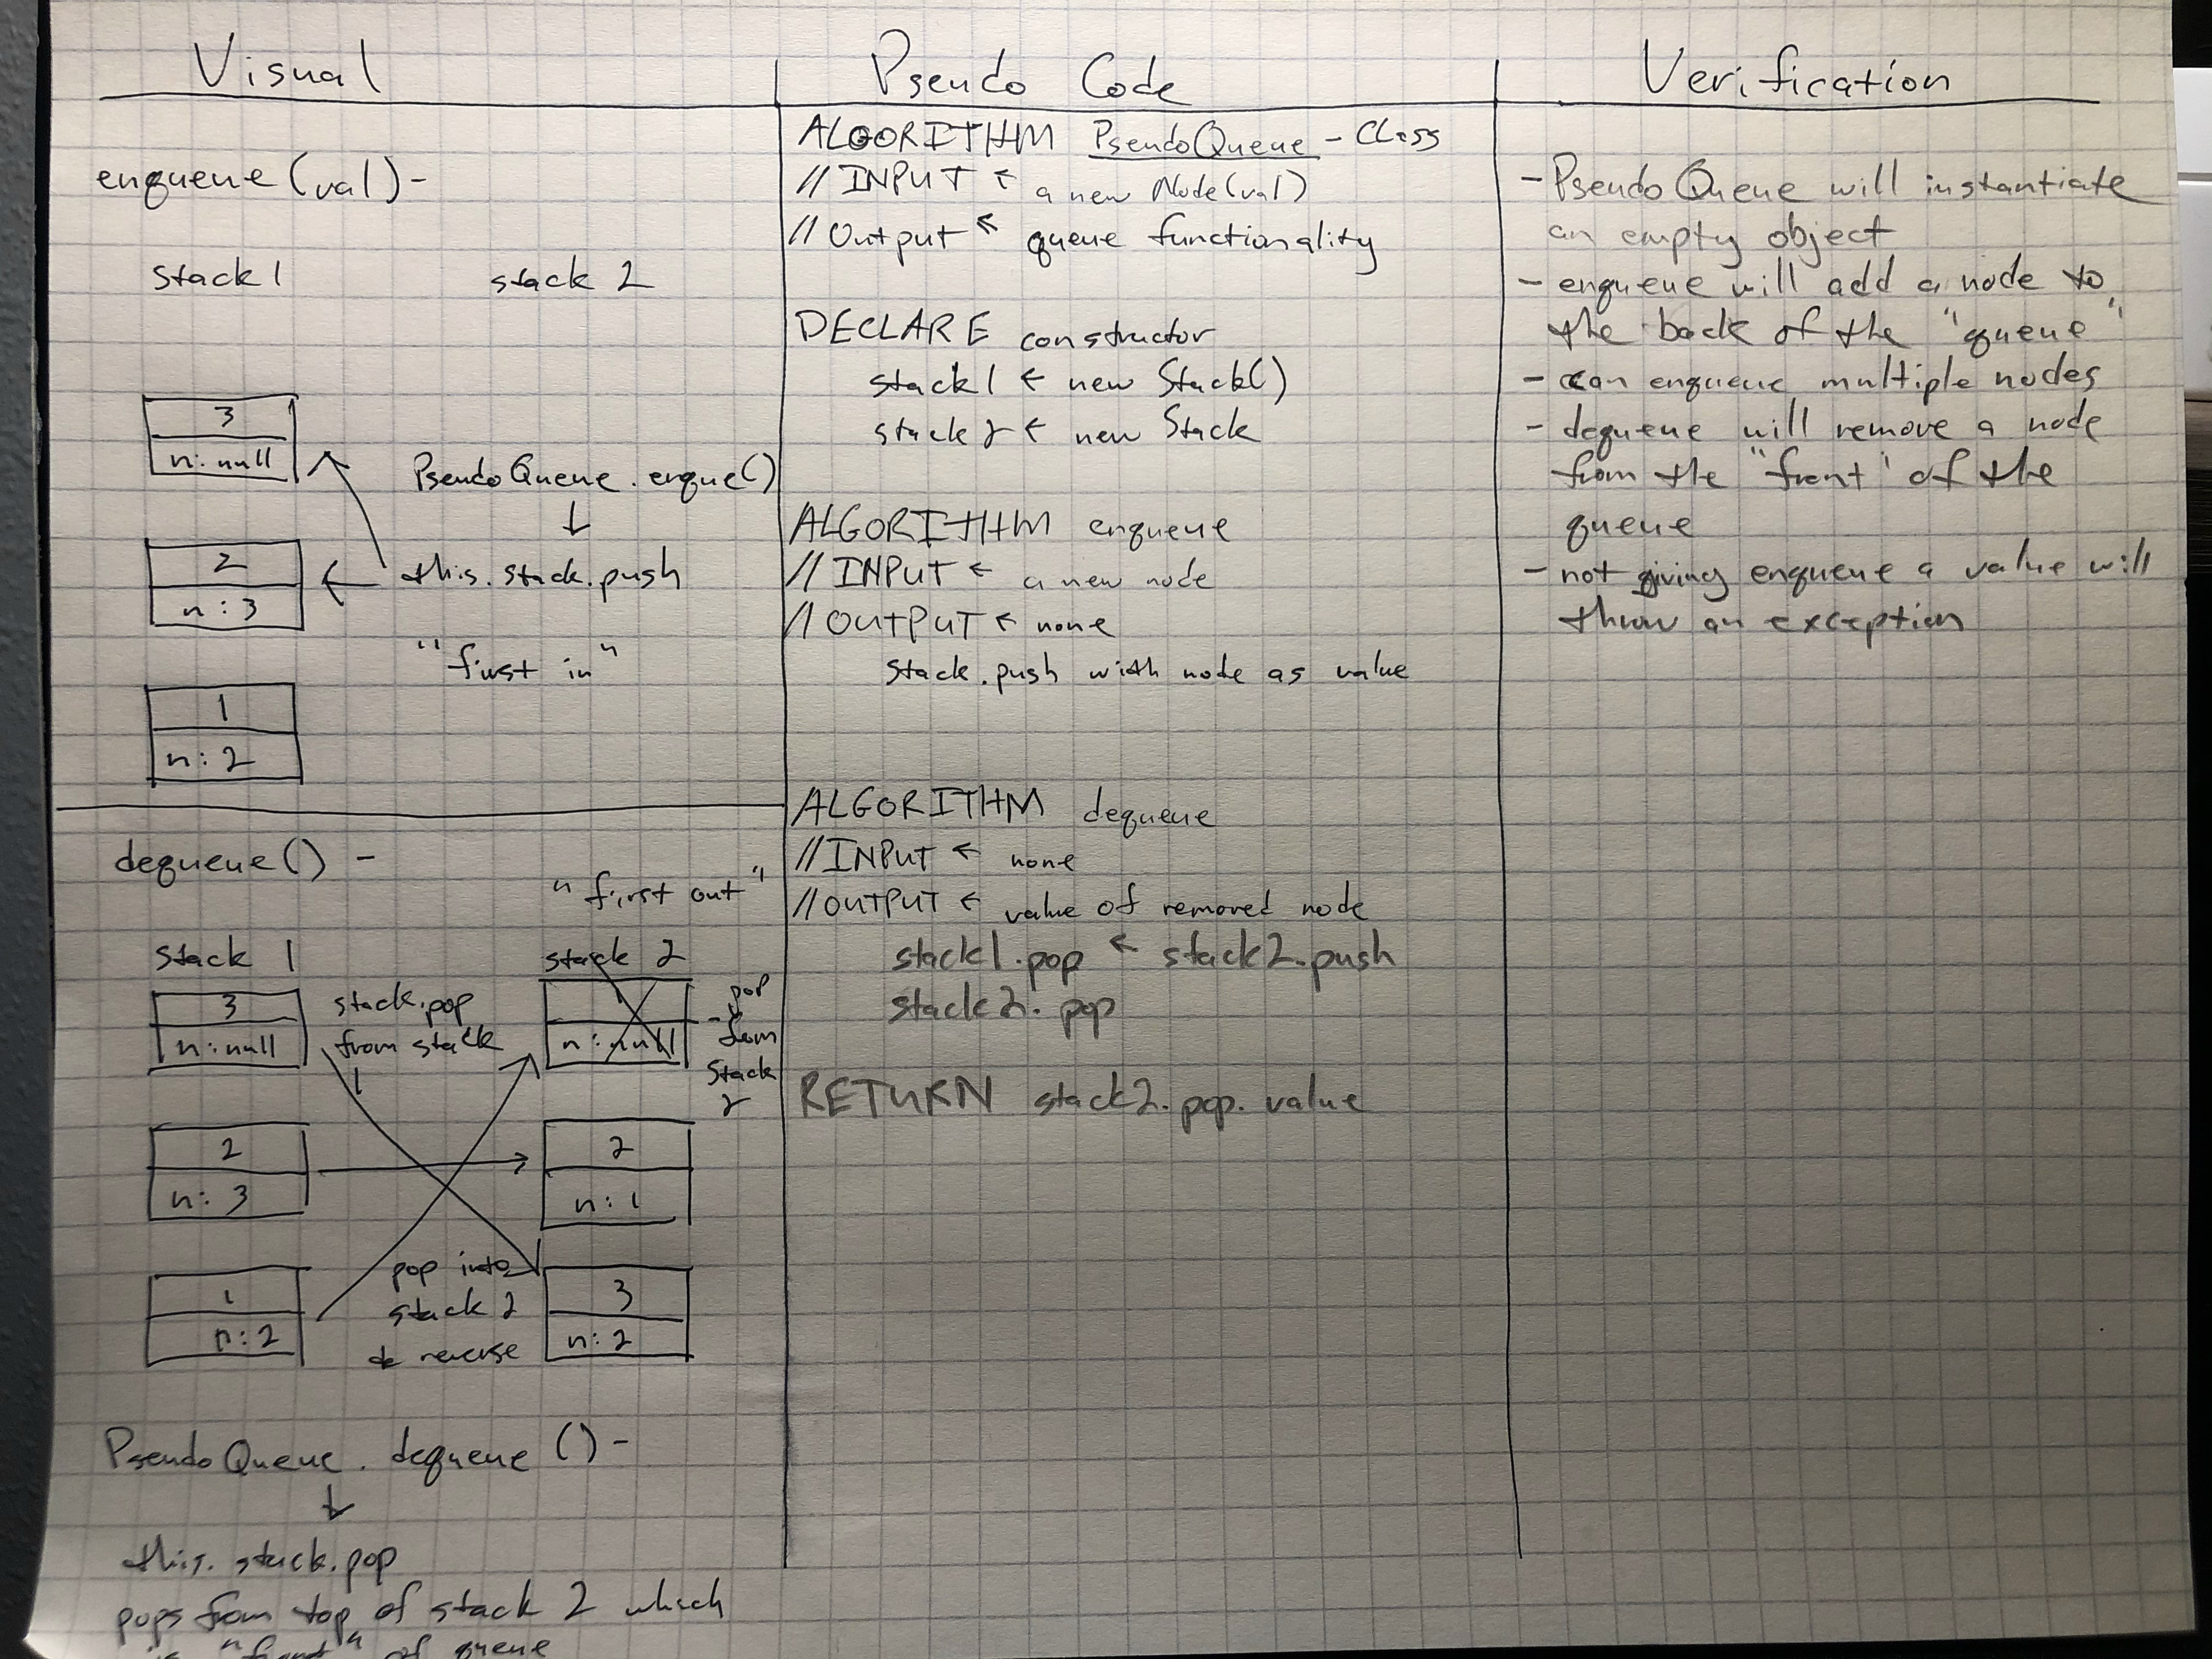 Visual
enqueue (val) -
stack 1 stack 2
3
n: null
Pseudo Queue . enque()
↓
2
n : 3
this. stack. push
"first in"
1
n: 2
dequeue () -
"first out"
stack 1
stack 2
3
n: null
stack. pop
from stack
1
n: null
- pop
from
stack
2
2
n: 3
2
n: 1
1
n: 2
pop into
stack 2
reverse
3
n: 2
Pseudo Queue. dequeue () -
↓
this. stack. pop
pops from top of stack 2 which
is "front" of queue
Pseudo Code
ALGORITHM PseudoQueue - Class
// INPUT ← a new Node(val)
// Output ← queue functionality
DECLARE constructor
stack1 ← new Stack()
stack2 ← new Stack
ALGORITHM enqueue
// INPUT ← a new node
// OUTPUT ← none
stack. push with node as value
ALGORITHM dequeue
// INPUT ← none
// OUTPUT ← value of removed node
stack1. pop ← stack2. push
stack2. pop
RETURN stack2. pop. value
Verification
- Pseudo Queue will instantiate
an empty object
- enqueue will add a node to
the back of the "queue"
- can enqueue multiple nodes
- dequeue will remove a node
from the "front" of the
queue
- not giving enqueue a value will
throw an exception